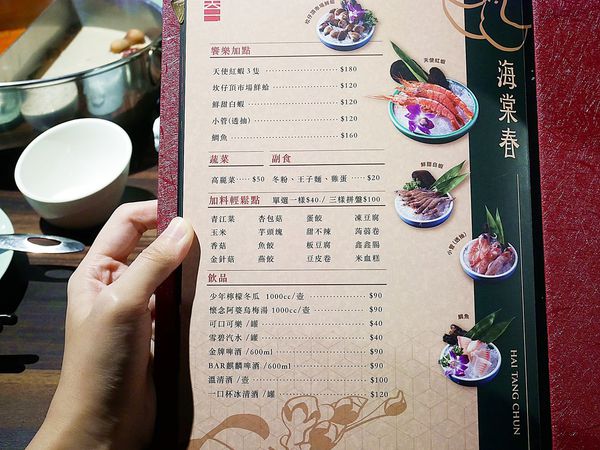 坎仔頂市場鮮蛤
饗樂加點
天使紅蝦3隻 $180
坎仔頂市場鮮蛤 $120
鮮甜白蝦 $120
小管(透抽) $120
鯛魚 $160
蔬菜 副食
高麗菜 $50 冬粉、王子麵、雞蛋 $20
加料輕鬆點 單選一樣$40./ 三樣拼盤$100
青江菜 杏包菇 蛋餃 凍豆腐
玉米 芋頭塊 甜不辣 蒟蒻卷
香菇 魚餃 板豆腐 鑫鑫腸
金針菇 燕餃 豆皮卷 米血糕
飲品
少年檸檬冬瓜 1000cc/壺 $90
懷念阿婆烏梅湯 1000cc/壺 $90
可口可樂 /罐 $40
雪碧汽水 /罐 $40
金牌啤酒 /600ml $90
BAR麒麟啤酒 /600ml $90
溫清酒 /壺 $100
一口杯冰清酒 /罐 $120
天使紅蝦
鮮甜白蝦
小管(透抽)
鯛魚
海棠春
HAI TANG CHUN